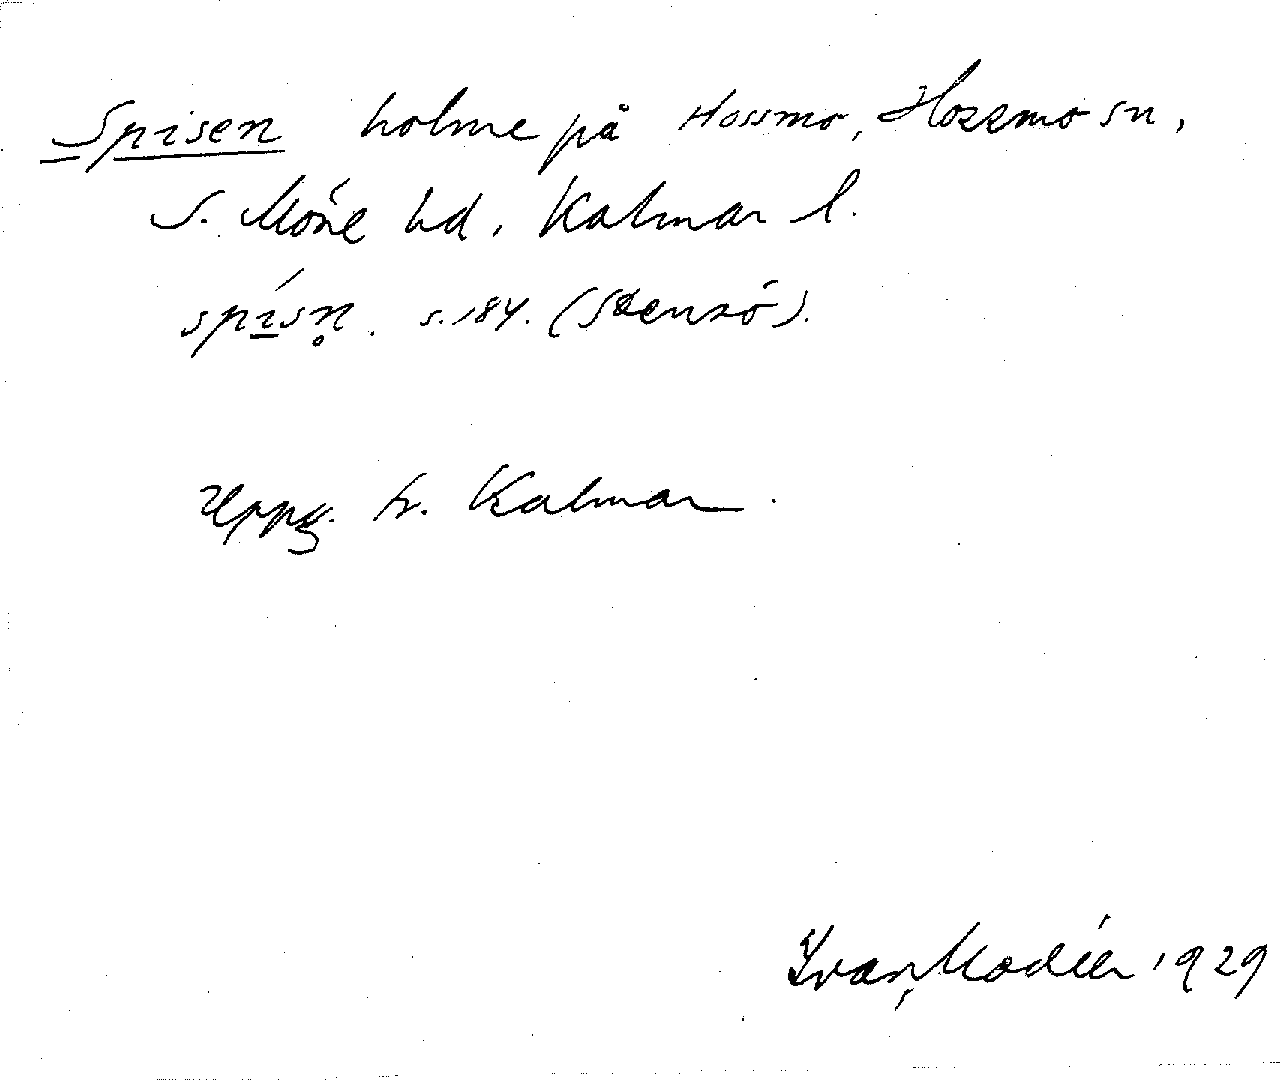 Spisen holme på Hossmo, Hossmo sn,
S. Möre hd, Kalmar l.
spísn̥. s. 184. (Stensö).
Uppg. fr. Kalmar.
Ivar Modéer 1929